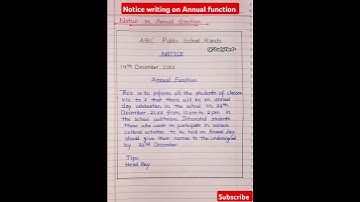 Notice writing on Annual function
Notice on Annual function
ABC Public School, Ranchi
NOTICE
14th December, 20XX
Annual Function
This is to inform all the students of classes
VII to X that there will be an annual
day celebration in the school on 24th
December, 20XX from 10 a.m to 2 p.m in
the school auditorium. Interested students
those who want to participate in various
cultural activities to be held on Annual day
should give their names to the undersigned
by 20th December
Tipu
Head Boy
Subscribe